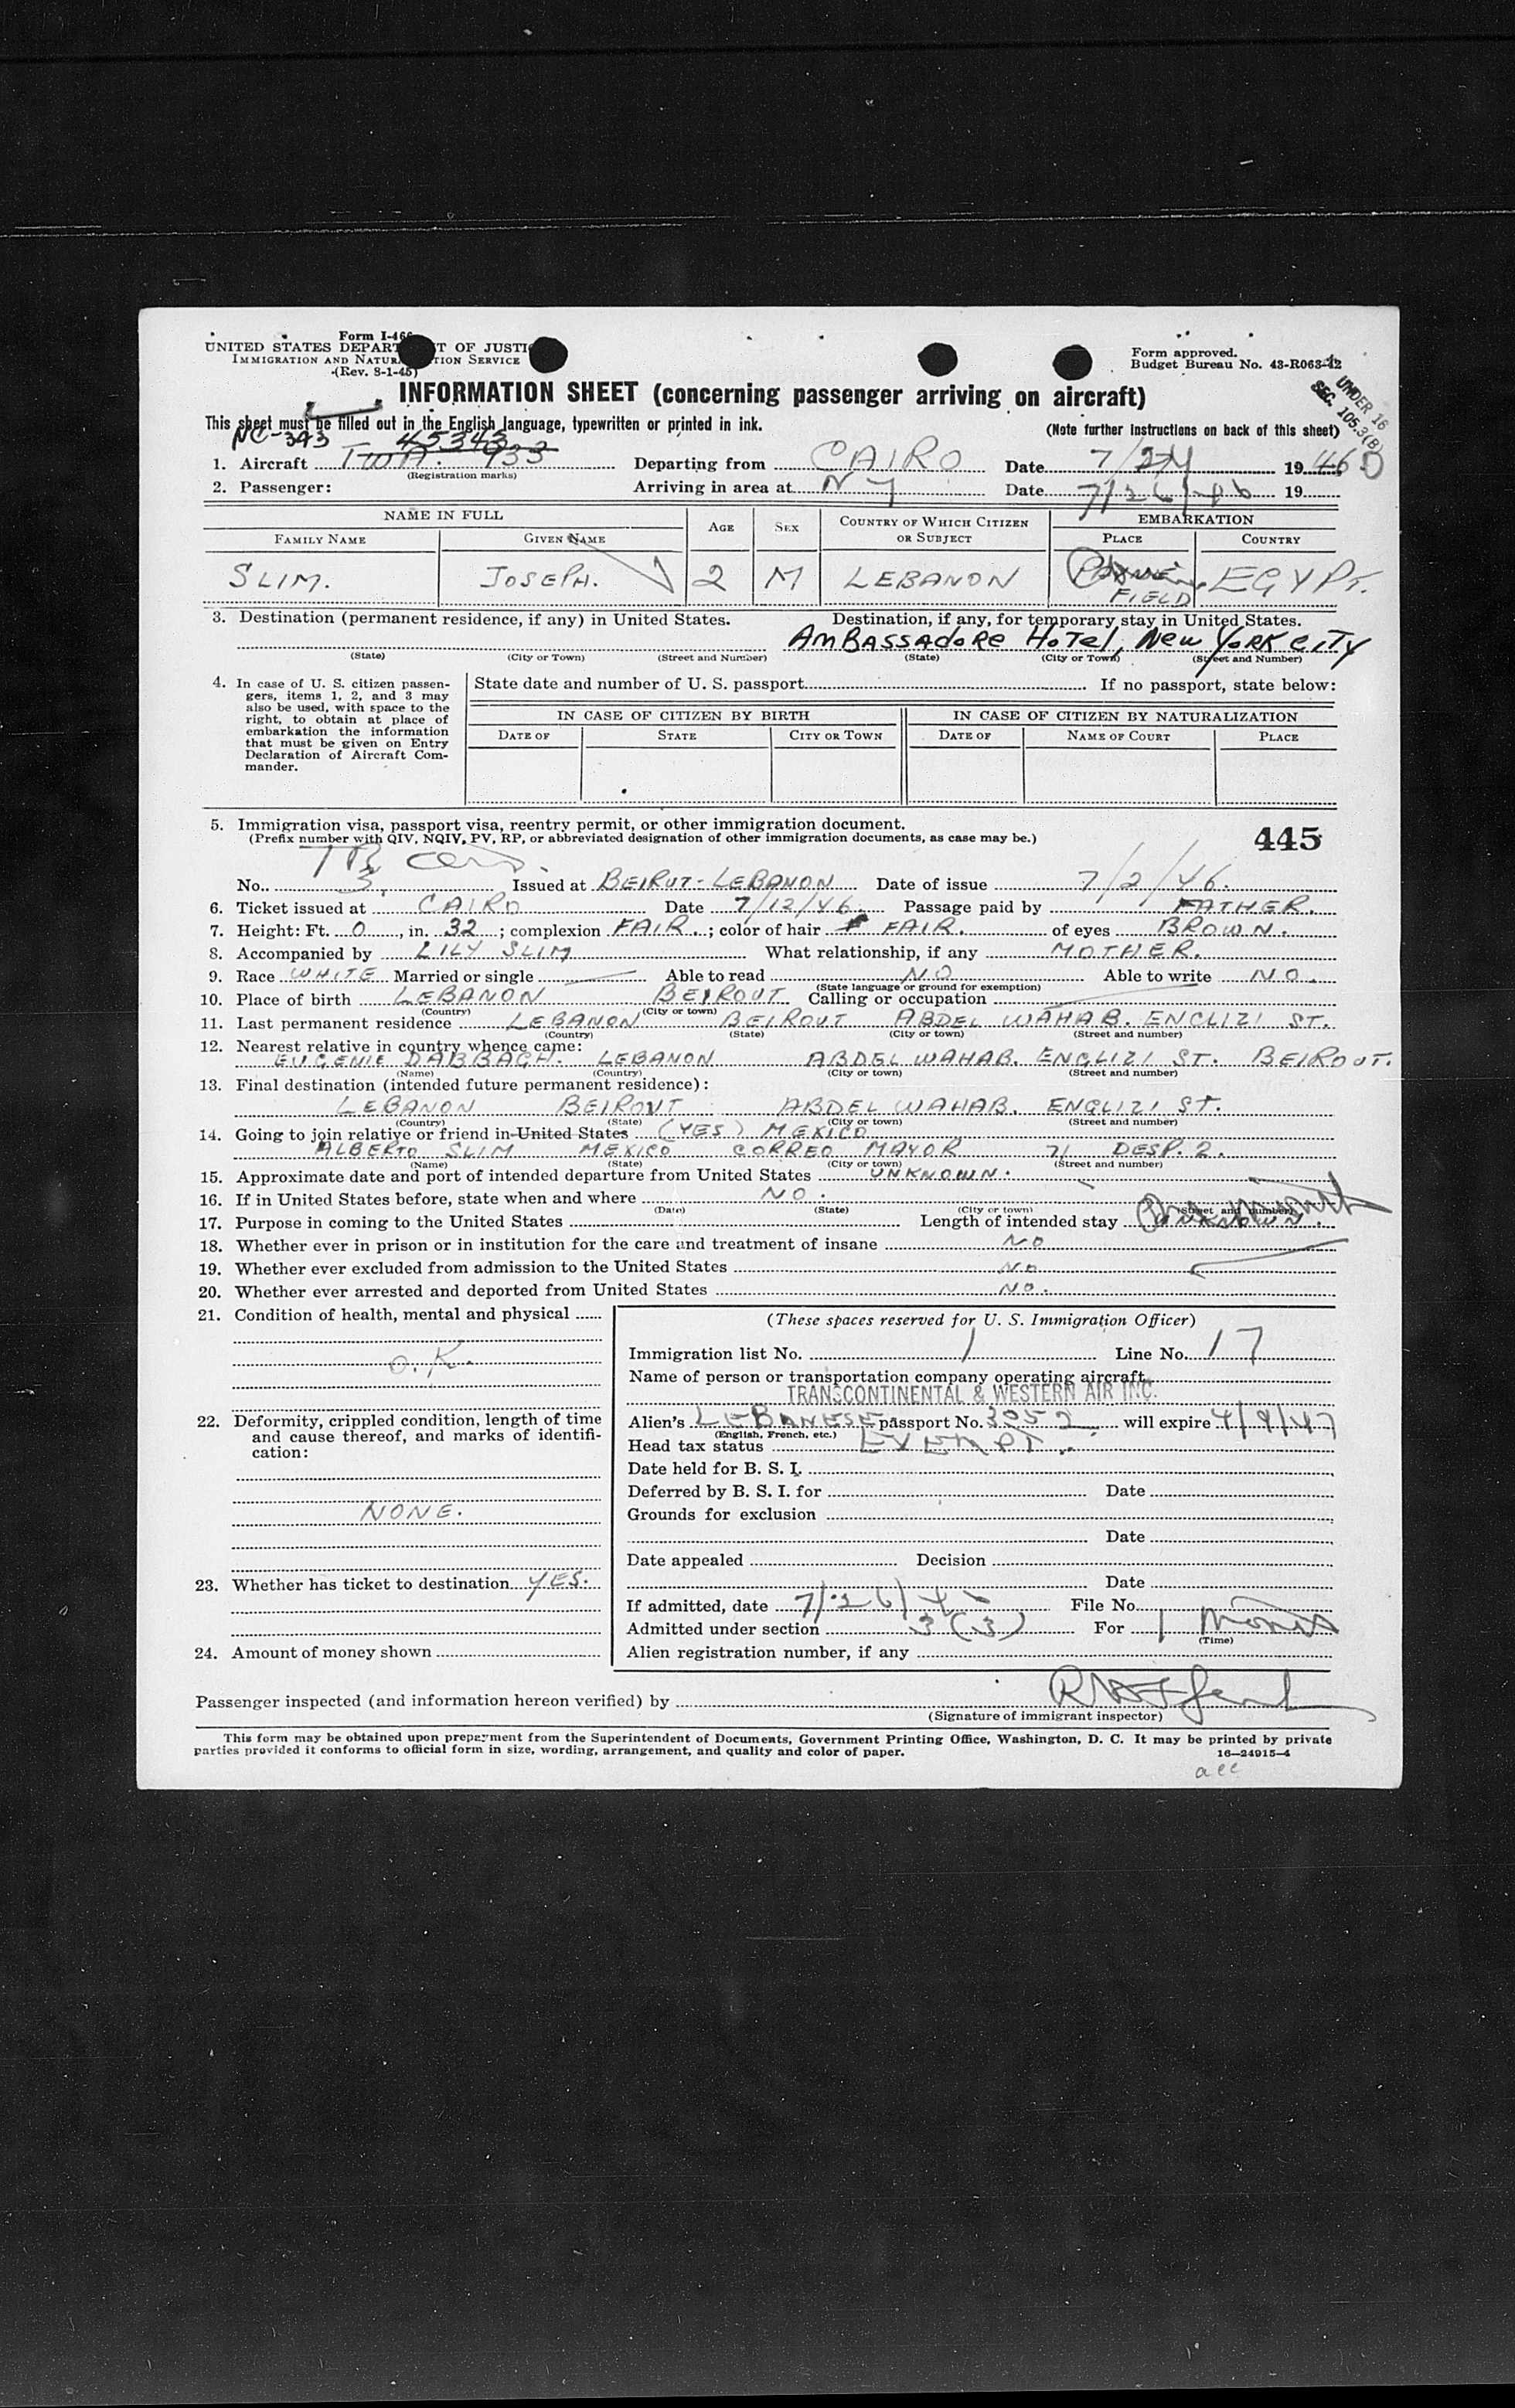 Form I-466
UNITED STATES DEPARTMENT OF JUSTICE
IMMIGRATION AND NATURALIZATION SERVICE
(Rev. 8-1-45)
Form approved.
Budget Bureau No. 43-R063-42
UNDER 16
SEC. 105.3(B)
INFORMATION SHEET (concerning passenger arriving on aircraft)
This sheet must be filled out in the English language, typewritten or printed in ink.
(Note further instructions on back of this sheet)
NC-393 45343
1. Aircraft TWA. 933 Departing from CAIRO Date 7/24 1946
(Registration marks)
2. Passenger: Arriving in area at NY Date 7/26/46 19
NAME IN FULL AGE SEX COUNTRY OF WHICH CITIZEN OR SUBJECT EMBARKATION
FAMILY NAME GIVEN NAME PLACE COUNTRY
SLIM. JOSEPH. 2 M LEBANON PAYNE FIELD EGYPT.
3. Destination (permanent residence, if any) in United States. Destination, if any, for temporary stay in United States.
AMBASSADORE HOTEL, NEW YORK CITY
(State) (City or Town) (Street and Number) (State) (City or Town) (Street and Number)
4. In case of U. S. citizen passengers, items 1, 2, and 3 may also be used, with space to the right, to obtain at place of embarkation the information that must be given on Entry Declaration of Aircraft Commander.
State date and number of U. S. passport If no passport, state below:
IN CASE OF CITIZEN BY BIRTH IN CASE OF CITIZEN BY NATURALIZATION
DATE OF STATE CITY OR TOWN DATE OF NAME OF COURT PLACE
5. Immigration visa, passport visa, reentry permit, or other immigration document.
(Prefix number with QIV, NQIV, PV, RP, or abbreviated designation of other immigration documents, as case may be.)
445
No. 3. Issued at BEIRUT-LEBANON Date of issue 7/2/46.
6. Ticket issued at CAIRO Date 7/12/46. Passage paid by FATHER.
7. Height: Ft. 0, in. 32; complexion FAIR.; color of hair FAIR. of eyes BROWN.
8. Accompanied by LILY SLIM What relationship, if any MOTHER.
9. Race WHITE Married or single Able to read NO Able to write NO.
(State language or ground for exemption)
10. Place of birth LEBANON BEIROUT Calling or occupation
(Country) (City or town)
11. Last permanent residence LEBANON BEIROUT ABDEL WAHAB. ENGLIZI ST.
(Country) (State) (City or town) (Street and number)
12. Nearest relative in country whence came:
EUGENIE DABBAGH. LEBANON ABDEL WAHAB. ENGLIZI ST. BEIROUT.
(Name) (Country) (City or town) (Street and number)
13. Final destination (intended future permanent residence):
LEBANON BEIROUT ABDEL WAHAB. ENGLIZI ST.
(Country) (State) (City or town) (Street and number)
14. Going to join relative or friend in United States (YES) MEXICO
ALBERTO SLIM MEXICO CORREO MAYOR 71 DESP. 2.
(Name) (State) (City or town) (Street and number)
15. Approximate date and port of intended departure from United States UNKNOWN.
16. If in United States before, state when and where NO.
(Date) (State) (City or town) (Street and number)
17. Purpose in coming to the United States Length of intended stay UNKNOWN.
18. Whether ever in prison or in institution for the care and treatment of insane NO
19. Whether ever excluded from admission to the United States NO
20. Whether ever arrested and deported from United States NO.
21. Condition of health, mental and physical
O.K.
22. Deformity, crippled condition, length of time and cause thereof, and marks of identification:
NONE.
23. Whether has ticket to destination YES.
24. Amount of money shown
(These spaces reserved for U. S. Immigration Officer)
Immigration list No. 1 Line No. 17
Name of person or transportation company operating aircraft
TRANSCONTINENTAL & WESTERN AIR INC.
Alien's LEBANESE passport No. 3052 will expire 4/9/47
(English, French, etc.)
Head tax status EXEMPT.
Date held for B. S. I.
Deferred by B. S. I. for Date
Grounds for exclusion
Date
Date appealed Decision
Date
If admitted, date 7/26/46 File No.
Admitted under section 3(3) For 1 Month
(Time)
Alien registration number, if any
Passenger inspected (and information hereon verified) by
(Signature of immigrant inspector)
This form may be obtained upon prepayment from the Superintendent of Documents, Government Printing Office, Washington, D. C. It may be printed by private
parties provided it conforms to official form in size, wording, arrangement, and quality and color of paper.
16—24915-4